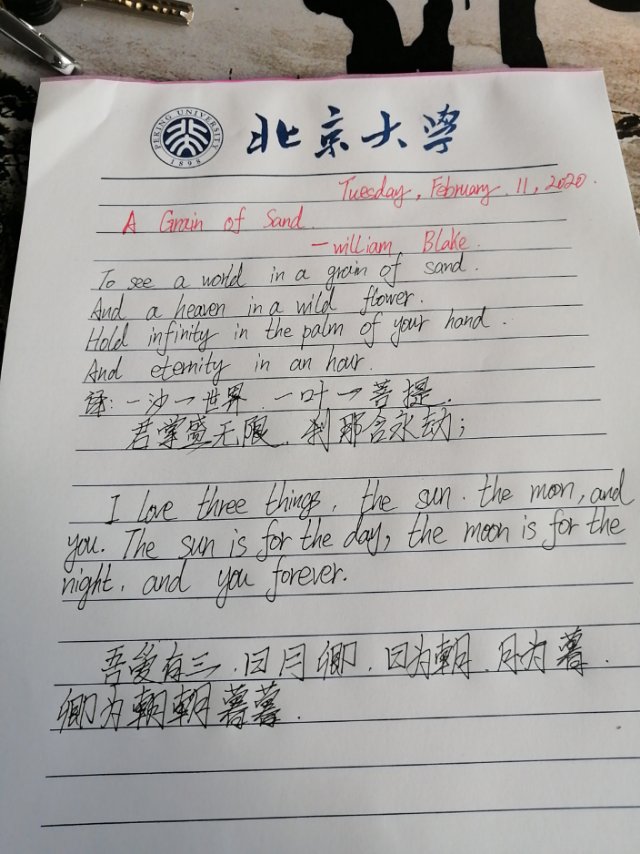 PEKING UNIVERSITY
1898
北京大学
Tuesday, February 11, 2020.
A Grain of Sand.
—william Blake.
To see a world in a grain of sand.
And a heaven in a wild flower.
Hold infinity in the palm of your hand.
And eternity in an hour.
译:一沙一世界.一叶一菩提.
君掌盛无限.刹那含永劫;
I love three things, the sun. the moon, and
you. The sun is for the day, the moon is for the
night. and you forever.
吾爱有三.日月卿.日为朝.月为暮.
卿为朝朝暮暮.